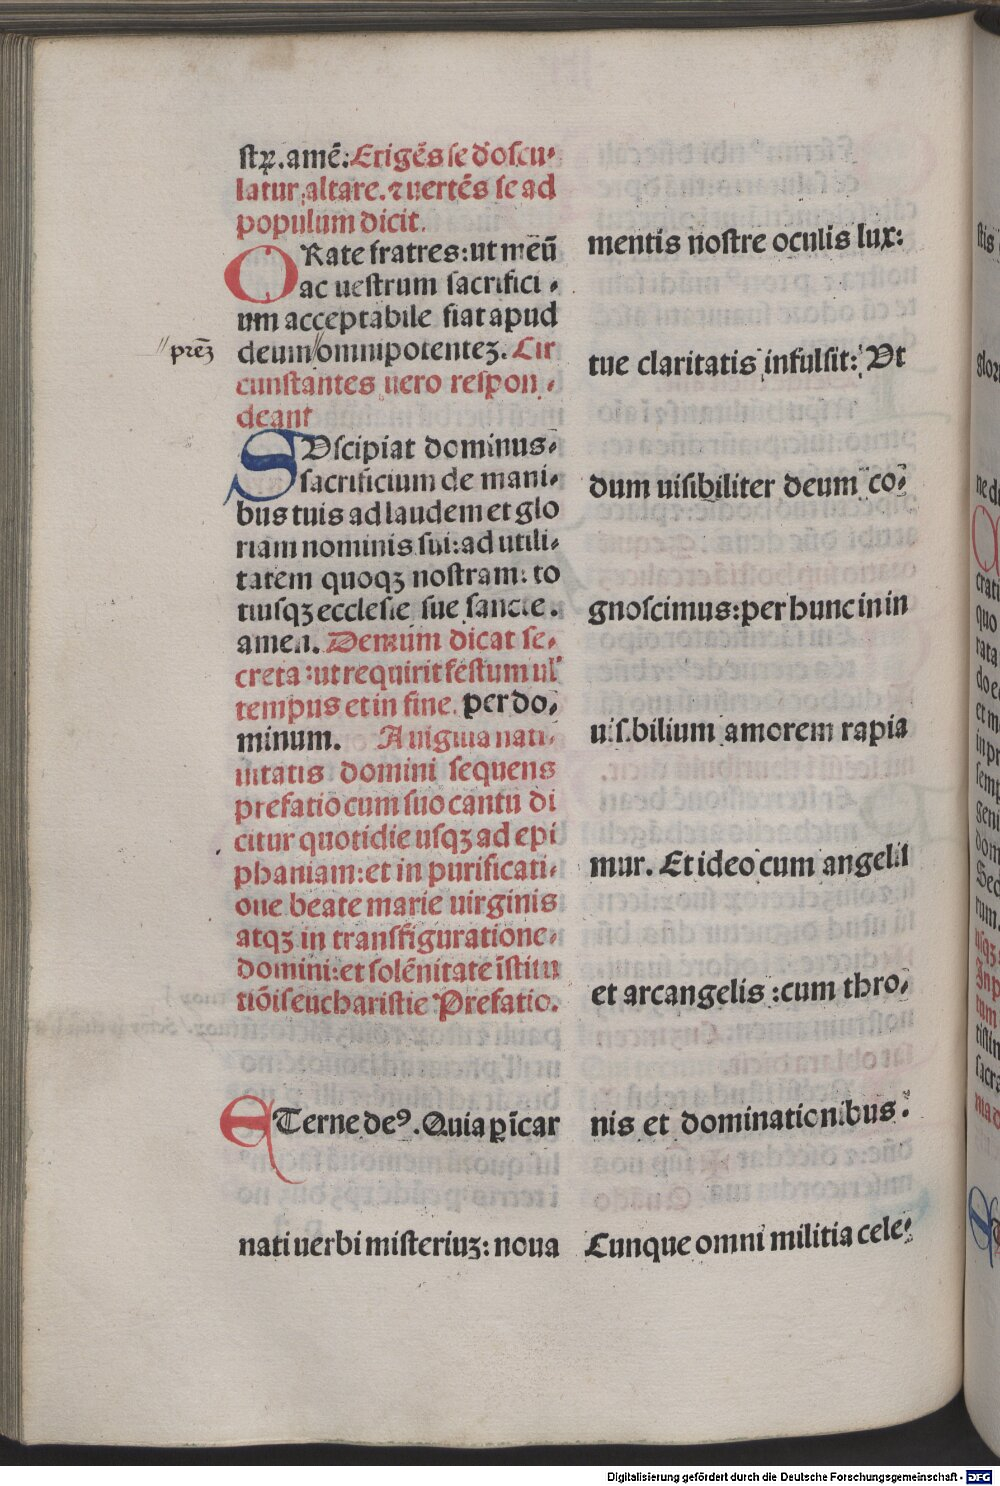 stꝝ. amē: Erigēs se d̄oscu⸗
latur altare. ⁊ uertēs se ad
populum dicit.
ORate fratres: ut meū
ac uestrum sacrifici⸗
um acceptabile fiat apud
deum omnipotenteʒ. Cir
p̄reʒ
cunstantes uero respon⸗
deant
SVscipiat dominus⸗
sacrificium de mani⸗
bus tuis ad laudem et glo
riam nominis sui: ad utili⸗
tatem quoqʒ nostram: to
tiusqʒ ecclesie sue sancte.
amen. Demum dicat se⸗
creta: ut requirit festum ul'
tempus et in fine. per do⸗
minum. A uigilia nati⸗
uitatis domini sequens
prefatio cum suo cantu di
citur quotidie usqʒ ad epi
phaniam: et in purificati⸗
one beate marie uirginis
atqʒ in transfiguratione⸗
domini: et solēnitate īstitu
tiōis eucharistie Prefatio.
ETerne deꝰ. Quia ꝑ īcar
nati uerbi misteriuʒ: noua
mentis nostre oculis lux:
tue claritatis infulsit: Vt
dum uisibiliter deum co⸗
gnoscimus: per hunc in in
uisibilium amorem rapia
mur. Et ideo cum angelis
et arcangelis: cum thro⸗
nis et dominationibus.
Cunque omni militia cele⸗
stis
glori
ne d
crati
quo
rata
do e
et m
in p
semp
geni
dom
Sed
rum.
usqʒ
In p
tum
tissim
sacra
ma d
Digitalisierung gefördert durch die Deutsche Forschungsgemeinschaft - DFG